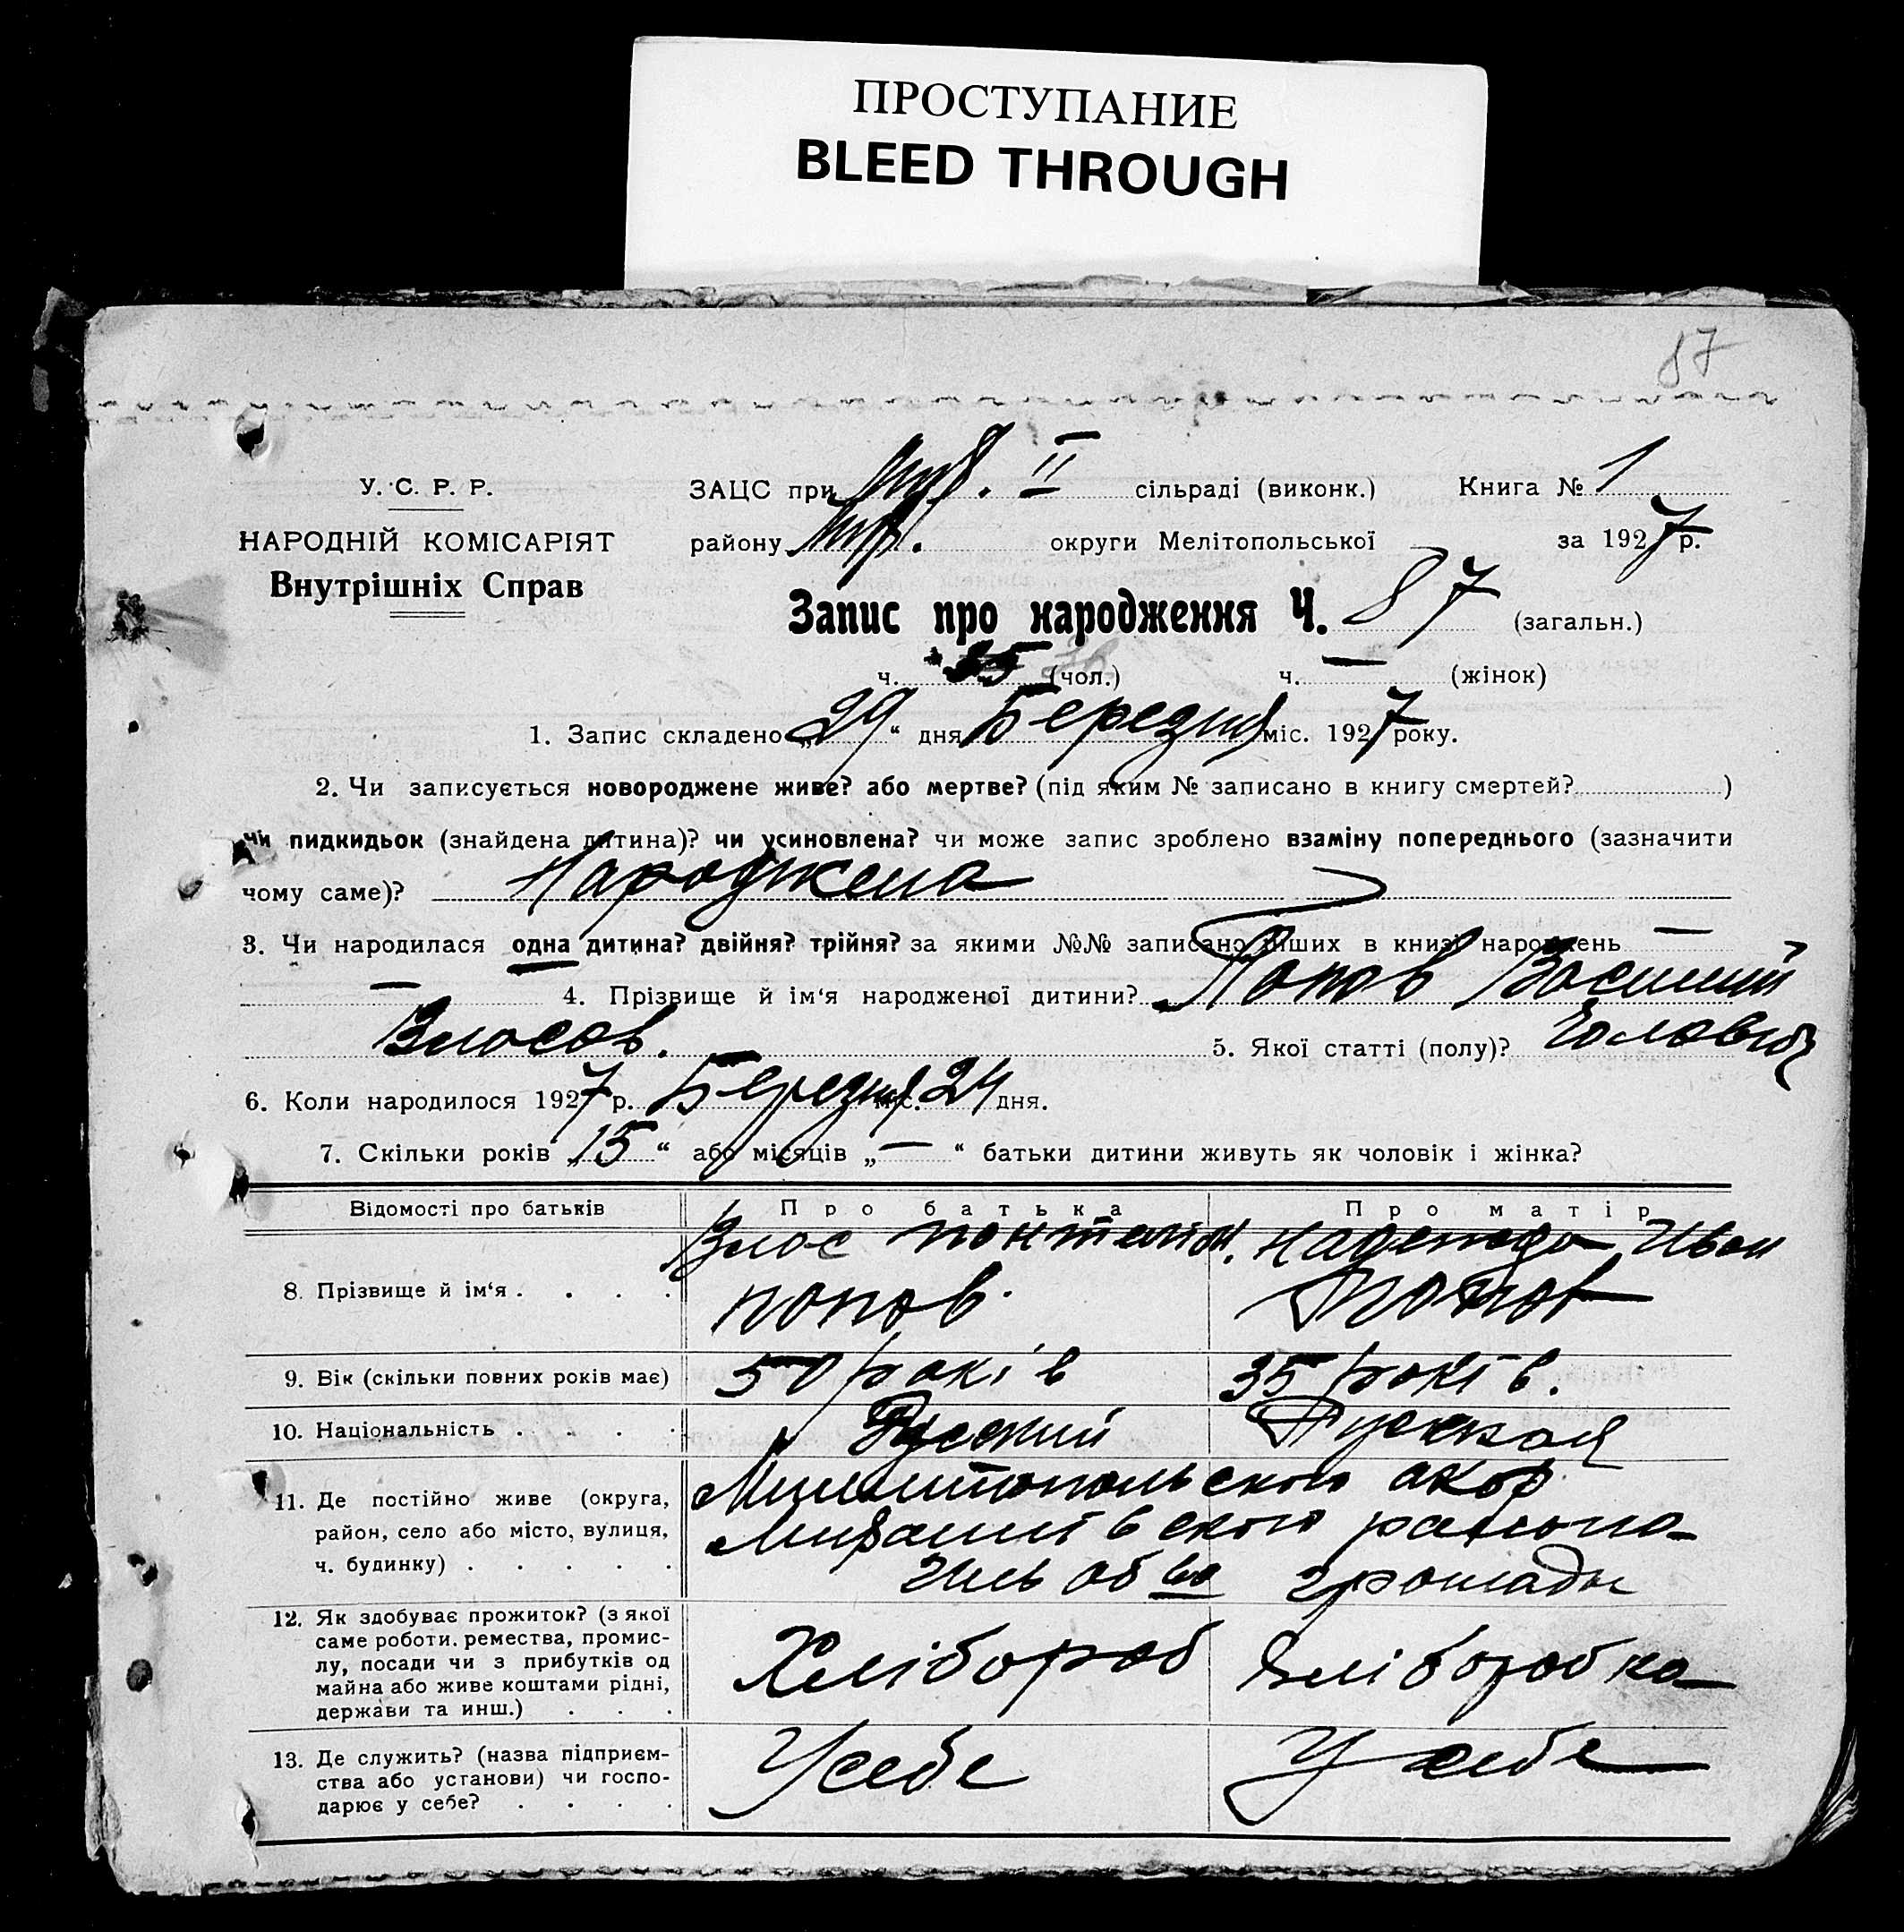 ПРОСТУПАНИЕ
BLEED THROUGH
87
У. С. Р. Р.
НАРОДНІЙ КОМІСАРІЯТ
Внутрішніх Справ
ЗАЦС при II сільраді (виконк.) Книга № 1
району округи Мелітопольської за 1927 р.
Запис про народження Ч. 87 (загальн.)
ч. 35 (чол.) ч. — (жінок)
1. Запис складено „29“ дня Березня міс. 1927 року.
2. Чи записується новороджене живе? або мертве? (під яким № записано в книгу смертей? )
чи пидкидьок (знайдена дитина)? чи усиновлена? чи може запис зроблено взаміну попереднього (зазначити
чому саме)? Народжена
3. Чи народилася одна дитина? двійня? трійня? за якими №№ записано інших в книзі народжень —
— 4. Прізвище й ім'я народженої дитини? Попов Василий
Власов. 5. Якої статті (полу)?
6. Коли народилося 1927 р. Березня міс. 24 дня.
7. Скільки років „15“ або місяців „—“ батьки дитини живуть як чоловік і жінка?
Відомості про батьків Про батька Про матір
8. Прізвище й ім'я . . . .
Влас понтелім. Надежда Иван
попов. Попов
9. Вік (скільки повних років має) 50 років 35 років.
10. Національність . . . . Русский Руская
11. Де постійно живе (округа,
район, село або місто, вулиця,
ч. будинку) . . . . .
району
громади
12. Як здобуває прожиток? (з якої
саме роботи. ремества, промис-
лу, посади чи з прибутків од
майна або живе коштами рідні,
держави та инш.) . . .
Хлібороб Хліборобка
13. Де служить? (назва підприєм-
ства або установи) чи госпо-
дарює у себе? . . . .
У себе У себе